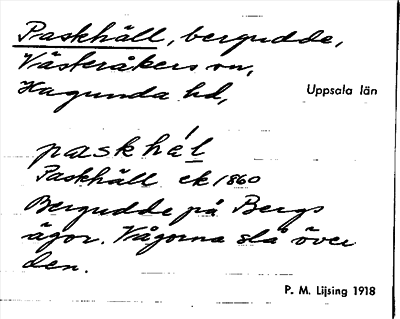 Paskhäll, bergudde,
Västeråkers sn,
Hagunda hd,
Uppsala län
paskhé̱l
Paskhäll ek 1860
Bergudde på Bergs
ägor. Vågorna slå över
den.
P. M. Lijsing 1918